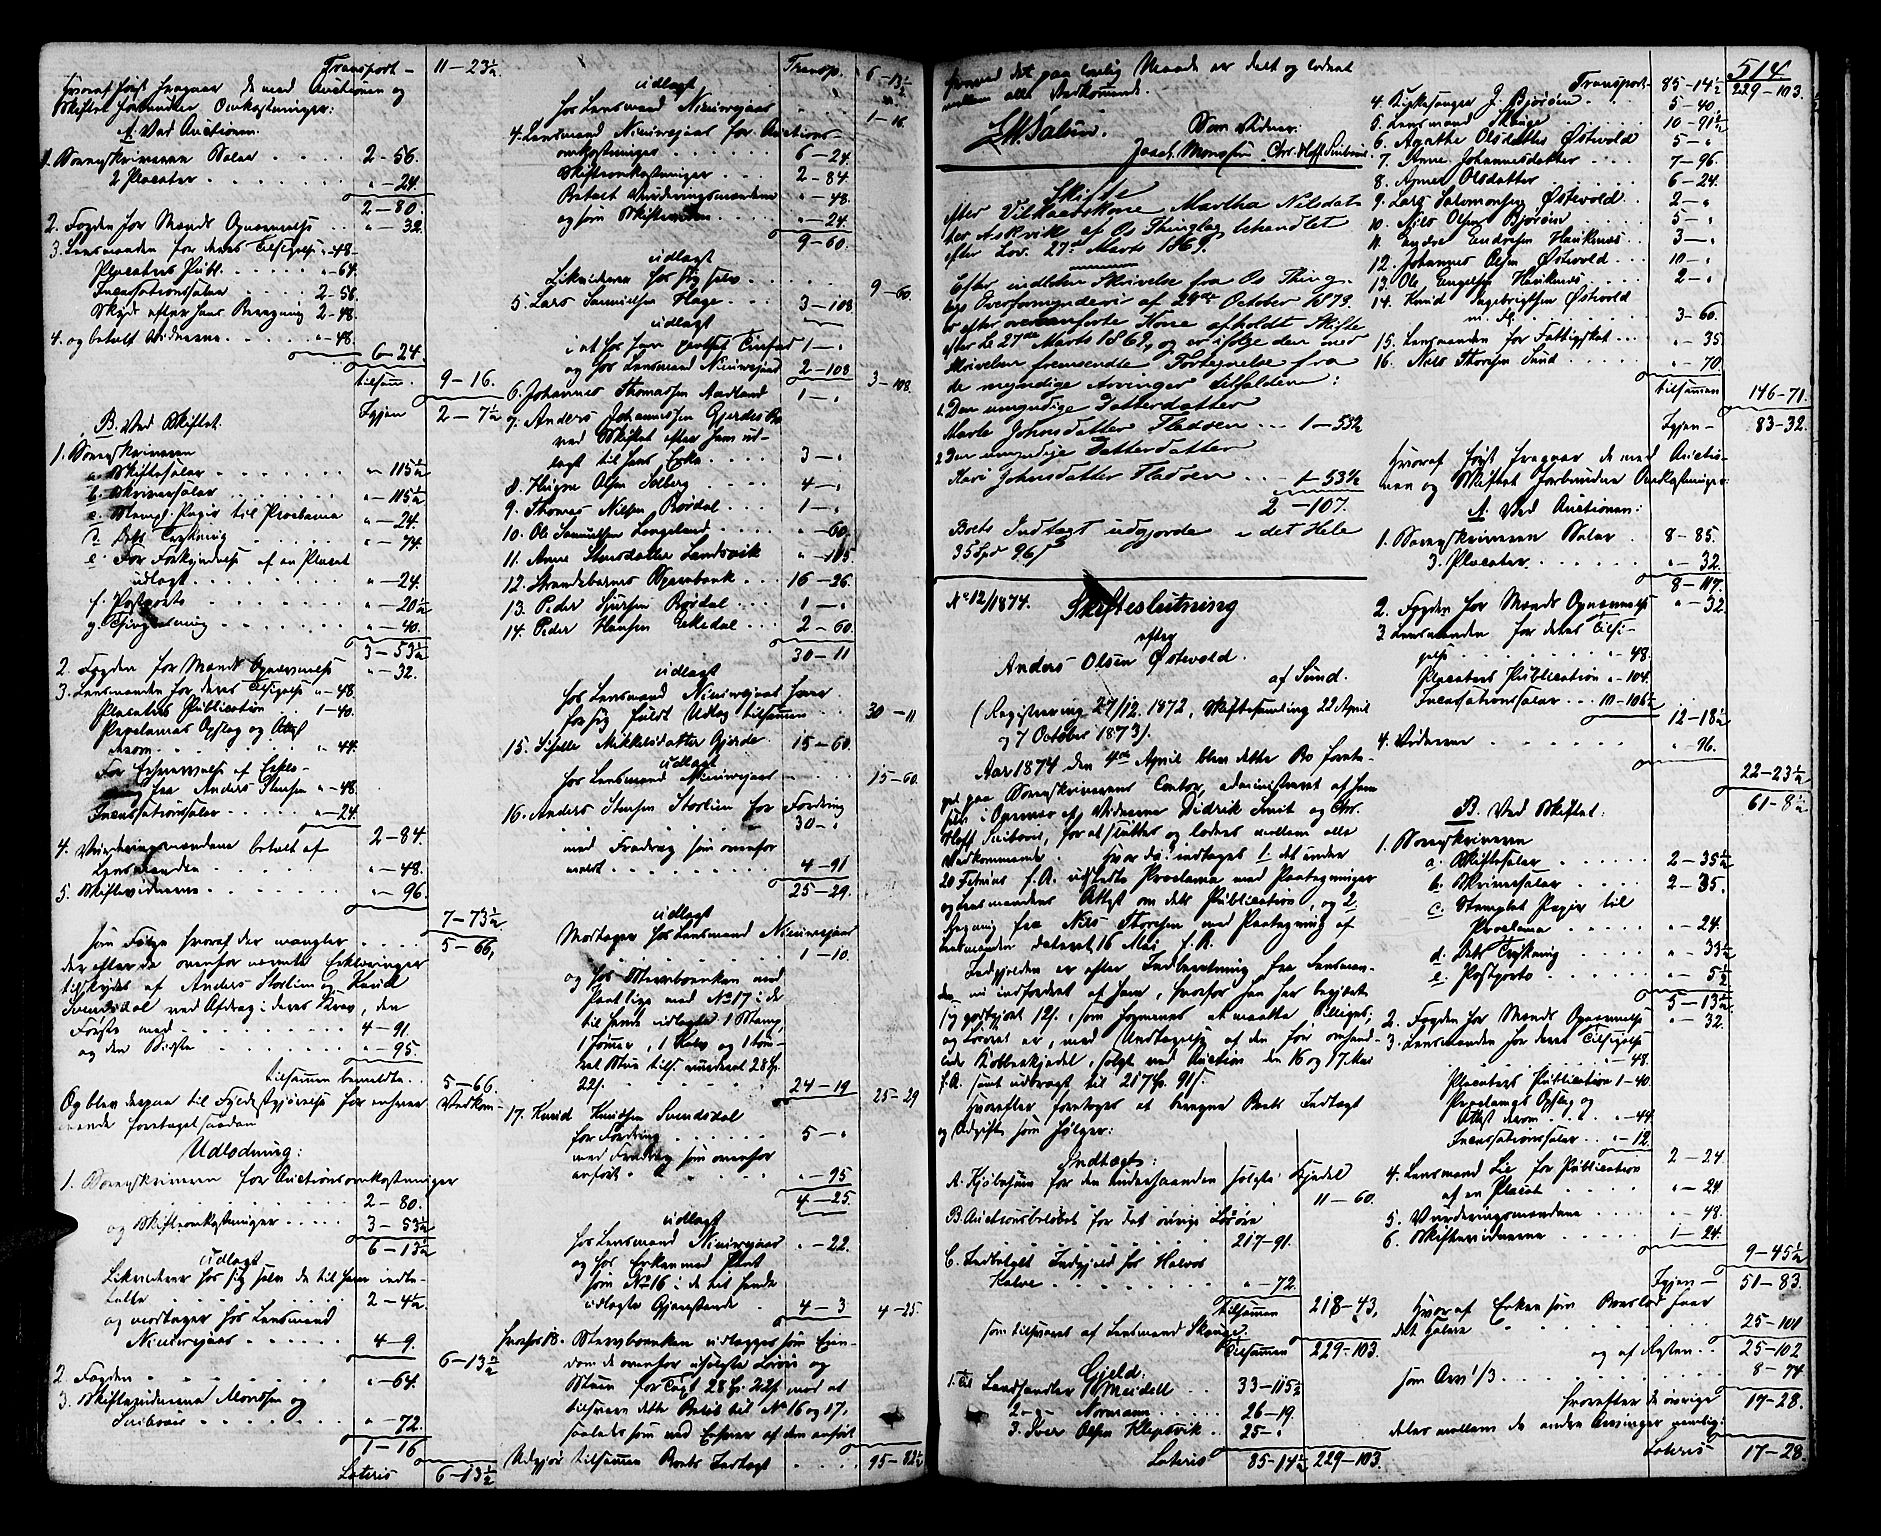 Transport - 11-23½
Hvoraf først fragaar de med Auctionen og
Skiftet forbundne Omkostninger:
A. Ved Auctionen.
1. Sorenskriveren Salær . . . 2-56.
2 Placater . . . . "-24.
2-80.
2. Fogden for Mænds Opnævnelse "-32.
3. Lensmanden for deres Tilsigelse "-48-
Placaters Publ. . . . . "-64.
Incassationssalær . . . 2-56.
Skyds efter hans Beregning 2-48.
4. og betalt Vidnerne . . . . "-48.
6-24.
tilsam. 9-16.
Igjen 2-7½
B. Ved Skiftet.
1. Sorenskriveren
a. Skiftesalær . . . . "-115½
b. Skriversalær . . . . "-115½
c. Stempl. Papir til Proclama "-24.
d. Dets Trykning . . . . "-74.
e. For Forkyndelse af en Placat
udlagt . . . . "-24.
f. Postporto . . . . "-20½
g. Thinglæsning . . . . "-40.
3-53½
2. Fogden for Mænds Opnævnelse "-32.
3. Lensmanden for deres Tilsigelse "-48
Placaters Publication . 1-40.
Proclamas Opslag og Attest
derom . . . . "-44.
For Erhvervelse af Erklæ-
ring fra Anders Stensen "-48.
Incassationssalær . . "-24.
2-84.
4. Vurderingsmændene betalt af
Lensmanden . . . . "-48.
5. Skiftevidnerne . . . . "-96.
7-73½
som Følge hvoraf der mangler . . . . 5-66,
der efter de ovenfor nævnte Erklæringer
tilskydes af Anders Storlien og Knud
Svendsdal ved Afdrag i deres Krav, den
Første med . . . . 4-91.
og den Sidste . . . . "-95.
tilsammen bemeldte . . 5-66.
Og blev derpaa til Fyldestgjørelse for enhver Vedkom-
mende foretaget saadan
Udlodning:
1. Sorenskriveren for Auctionsomkostninger
2-80.
og Skifteomkostninger . . . . 3-53½
6-13½
udlagt
Likviderer hos sig selv de til ham indbe-
talte . . . . 2-4½
og modtager hos Lensmand
Nimersgaar . . . . 4-9.
6-13½
2. Fogden . . . . "-64.
3. Skiftevidnerne Monssen og
Smiboe . . . . "-72.
1-16
Lateris 6-13½
Transp. 6-13½
udlagt
hos Lensmand . . . . 1-16.
4. Lensmand for Auctions-
omkostninger . . . . 6-24.
Skifteomkostninger . . . 2-84
Betalt Vurderingsmændene "-48.
og som Skiftevidnen . . . "-24.
9-60.
udlagt
Likviderer hos sig selv . . . . 9-60.
5. Lars Samuelsen Hage . . . 3-108
udlagt
1-"
og hos Lensmand 2-108
3-108.
6. Johannes Thomassen Aadland 1-"
7. Anders Johannessen Gjerdes Bo
ved Skiftet efter ham ud-
lagt til hans Enke . . . 3-"
8. Haagen Olsen Solberg . . . 4-"
9. Thomas Nilsen Rørdal . . 1-"
10. Ole Samuelsen Langeland . . "-60.
11. Anne Stensdatter Sandvik "-105
12. Strandebarms Sparebank . . . 16-26.
13. Peder Sjursen Rørdal . . . 1-"
14. Peder Hansen Ekedal . . . 2-60.
30-11
udlagt
hos Lensmand
for sig fuldt Udlæg tilsammen . . . 30-11
15. Siselle Mikkelsdatter Gjerde. 15-60.
udlagt
hos Lensmand . . . . 15-60.
16. Anders Stensen Storlien for Fordring
30-"
med Fradrag som ovenfor
anført . . . . 4-91
25-29.
udlagt
Modtager hos Lensmand
1-10.
og hos Stervboenken med
Pantlige med No 17 i de
til hende udlagte 1 Stamp,
22ſ. 24-19
25-29
17. Knud Knudsen Svendsdal
for Fordring . . . . 5-"
med Fradrag som ovenfor
anført . . . . "-95
4-25.
udlagt
hos Lensmand "-22.
og hos Enken med Pant
som No 16 i de til hende
udlagte Gjenstande . 4-3
4-25
hvorfor 18. Stervboenken udlægges som Eien-
dom de ovenfor usolgte Løsøre og
Stuen for Taxt 28 Sp. 22ſ. mod at
tilsvare dette Beløb til No 16 og 17,
saaledes som ved Enhver af dem anført
Udgjør tilsammen Boets Indtægt . . . . 95-82½
hvormed det paa lovlig Maade er delt og loddet
mellem alle Vedkommende.
Som Vidner:
Jacob Monssen Chr. Hoff Smiboe.
Skifte
efter Vilkaarskone Martha Nilsdat-
ter Askvik af Os Thinglag behandlet
efter Lov. 27de Marts 1869.
Efter indløben Skrivelse fra Os Thing-
lags Overformynderi af 28de October 1873.
er efter ovenanførte Kone afholdt Skifte
efter Lov 27de Marts 1869, og er ifølge den med
Skrivelsen fremsendte Fortegnelse fra
de myndige Arvinger tilfalden:
1. Den umyndige Datterdatter
Marte Johnsdatter Fladsen . . . 1-53½
2. Den umyndige Datterdatter
Kari Johnsdatter Fladsen . . . 1-53½
2-107.
Boets Indtægt udgjorde i det Hele
35 Spd 96ſ
No 12/1874. Skifteslutning
efter
Anders Olsen Østvold.
af Sund.
(Registrering 27/12. 1872, Skiftesamling 22 April
og 7 October 1873).
Aar 1874 den 4de April blev dette Bo foreta-
get paa Sorenskriverens Contor, administreret af ham
selv i Overvær af Vidnerne Didrik Smit og Chr.
Hoff Smiboe, for at sluttes og loddes mellem alle
Vedkommende. Hvor da: indtoges 1. det under
20 Februar f. A. udstedte Proclama med Paategninger
og Lensmandens Attest om dets Publication, og 2.
Regning fra Nils Thorsen med Paategning af
Lensmanden dateret 16 Mai f. A.
Indgjelden er efter Indberetning fra Lensman-
den nu indfordret af ham, hvorfor han har begjært
sig godtgjort 12ſ., som formenes at maatte billiges;
og Løsøret er, med Undtagelse af den før omhand-
lede Kobberkjedel, solgt ved Auction den 16 og 17 Mai
f. A. samt udbragt til 217 Sp. 91ſ.
Hvorefter foretoges at beregne Boets Indtægt
og Udgift som følger:
Indtægt:
A. Kjøbesum for den underhaanden solgte Kjedel
11-60.
B. Auctionsbeløbet for det øvrige Løsøre
217-91.
C. Indbetalt Indgjeld hos Halvor
Kalve . . . . "-72.
tilsammen 218-43,
som tilsvares af Lensmand Skouge.
Tilsammen 229-103.
Gjeld.
1. til Landhandler Meidell . . . 33-115½
2. Normann . . . . 26-19.
3. Iver Olsen Kleppsvik . . 25-"
Lateris 85-14½ 229-103.
514
Transport- 85-14½ 229-103.
4. Kirkesanger J. Bjørøen . . 5-40.
5. Lensmand Skouge . . . . 10-91½
6. Agathe Olsdatter Østvold 5-"
7. Anne Johannesdatter . . . 7-96.
8. Agnes Olsdatter . . . . 6-24.
9. Lars Salomonsen Østvold . . 2-"
10. Nils Olsen Bjørøen . . . . 5-"
11. Endre Endresen Haukenæs . . 3-"
12. Johannes Olsen Østvold . . . 10-"
13. Ole Engelsen Haukenæs . . 2-"
14. Knud Ingebrigtsen Østvold
m. Fl. . . . . 3-60.
15. Lensmanden for Fattigskat . . . "-35
16. Nils Thorsen Sund . . . . "-70.
tilsammen 146-71.
Igjen - 83-32.
Hvoraf først fragaar de med Auctio-
nen og Skiftet forbundne Omkostninger:
A. Ved Auctionen:
1. Sorenskriveren Salær . . 8-85.
3. Placater . . . . "-32.
8-117.
2. Fogden for Mænds Opnævnelse "-32.
3. Lensmanden for deres Tilsi-
gelse . . . . "-48.
Placaters Publication "-104.
Incassationssalær . . . 10-106½
12-18½
4. Vidnerne . . . . "-96.
22-23½
61-8½
B. Ved Skiftet:
1. Sorenskriveren
a. Skiftesalær . . . . 2-35½
b. Skriversalær . . . . 2-35.
c. Stemplet Papir til
Proclama . . . . "-24.
d. Dets Trykning . . . . "-33½
e. Postporto . . . . "-5½
5-13½
2. Fogden for Mænds Opnævnelse "-32.
3. Lensmanden for deres Tilsigelse
"-48.
Placaters Publication 1-40.
Proclamas Opslag og
Attest derom . . . . "-44.
Incassationssalær . . "-12.
2-24.
4. Lensmand Lie for Publication
af en Placat . . . . "-24.
5. Vurderingsmændene . . . . "-48.
6. Skiftevidnerne . . . . 1-24.
9-45½
Igjen - 51-83.
Hvoraf Enken som Boeslod faar
det Halve . . . . 25-101
og af Resten . . 25-102
som Arv 1/3 . . . . 8-74
hvorefter de øvrige 17-28.
deles mellem de andre Arvinger nemlig:
Lateris 17-28.